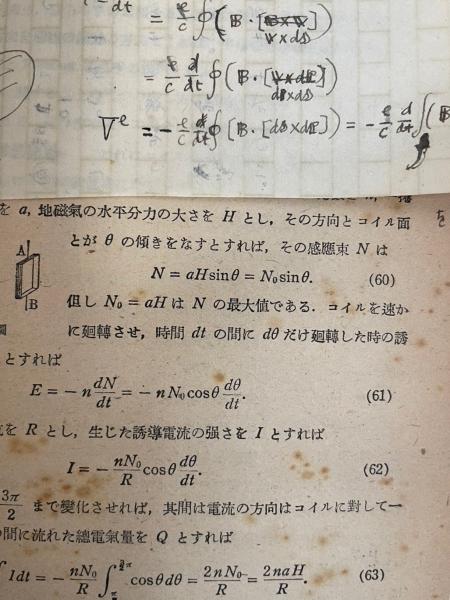 dt = e/c ∮ ( B · [
v×ds
= e/c d/dt ∮ ( B · [
V^e = - e/c d/dt ∮ [ B · [ds×dl] ) = - e/c d/dt ∫ ( B
を
を a, 地磁氣の水平分力の大さを H とし, その方向とコイル面
とが θ の傾きをなすとすれば, その感應束 N は
N = aH sin θ = N₀ sin θ. (60)
A
但し N₀ = aH は N の最大値である. コイルを速か
B
に廻轉させ, 時間 dt の間に dθ だけ廻轉した時の誘
とすれば
E = - n dN/dt = - nN₀ cos θ dθ/dt. (61)
を R とし, 生じた誘導電流の强さを I とすれば
I = - nN₀/R cos θ dθ/dt. (62)
3π/2 まで變化させれば, 其間は電流の方向はコイルに對して一
の間に流れた總電氣量を Q とすれば
Idt = - nN₀/R ∫ cos θ dθ = 2nN₀/R = 2naH/R. (63)